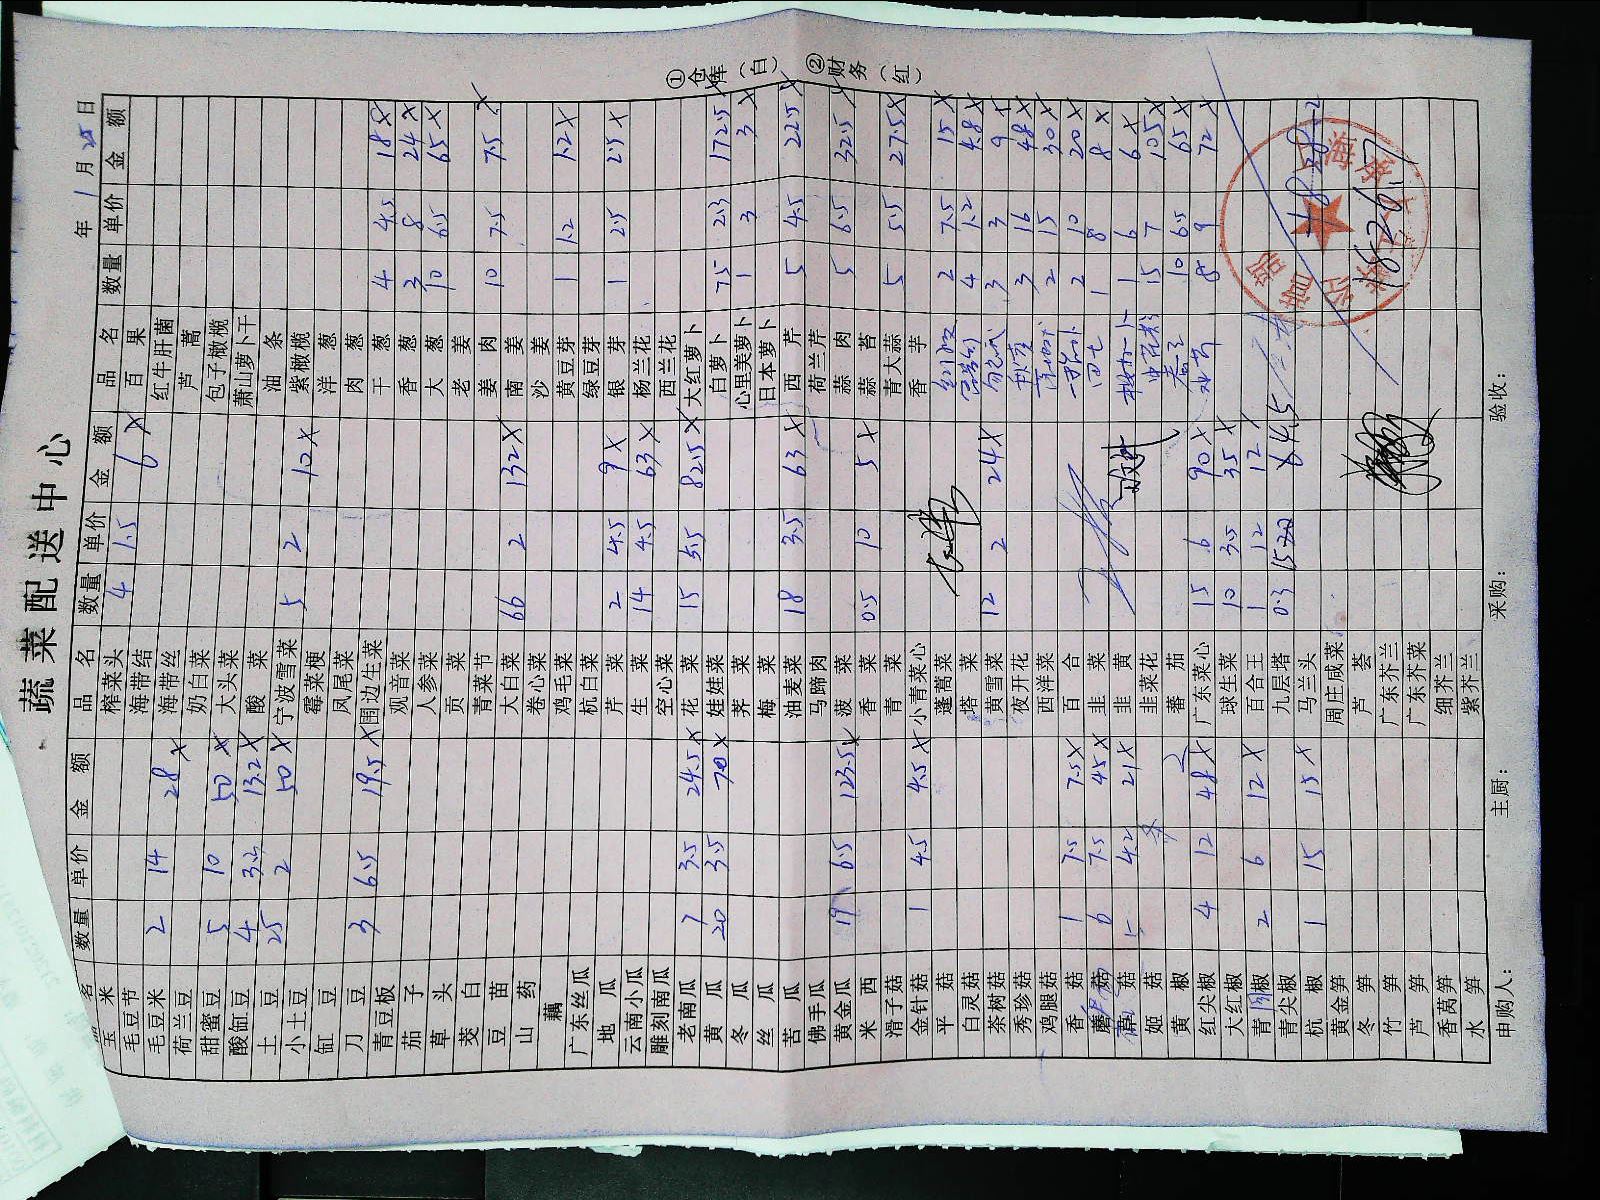 蔬菜配送中心
年 1 月 25 日
品名 数量 单价 金额 品名 数量 单价 金额 品名 数量 单价 金额
玉米 榨菜头 4 1.5 6 百果
毛豆节 海带结 红牛肝菌
毛豆米 2 14 28 海带丝 芦蒿
荷兰豆 奶白菜 包子橄榄
甜蜜豆 5 10 50 大头菜 萧山萝卜干
酸缸豆 4 3.3 13.2 酸菜 油条
土豆 25 2 50 宁波雪菜 5 2 10 紫橄榄
小土豆 霉菜梗 洋葱
缸豆 凤尾菜 肉葱
刀豆 3 6.5 19.5 围边生菜 干葱 4 4.5 18
青豆板 观音菜 香葱 3 8 24
茄子 人参菜 大葱 10 6.5 65
草头 贡菜 老姜
茭白 青菜节 姜肉 10 7.5 75
豆苗 大白菜 66 2 132 南姜
山药 卷心菜 沙姜
藕 鸡毛菜 黄豆芽 1 1.2 1.2
广东丝瓜 杭白菜 绿豆芽
地瓜 芹菜 2 4.5 9 银芽 1 2.5 2.5
云南小瓜 生菜 14 4.5 63 杨兰花
雕刻南瓜 空心菜 西兰花
老南瓜 7 3.5 24.5 花菜 15 5.5 82.5 大红萝卜
黄瓜 20 3.5 70 娃娃菜 白萝卜 75 2.3 172.5
冬瓜 荠菜 心里美萝卜 1 3 3
丝瓜 梅菜 日本萝卜
苦瓜 油麦菜 18 3.5 63 西芹 5 4.5 22.5
佛手瓜 马蹄肉 荷兰芹
黄金瓜 19 6.5 123.5 菠菜 蒜肉 5 6.5 32.5
米西 香菜 0.5 10 5 蒜苔
滑子菇 青菜 青大蒜 5 5.5 27.5
金针菇 1 4.5 4.5 小青菜心 香芋
平菇 蓬蒿菜 2 7.5 15
白灵菇 塔菜 4 1.2 4.8
茶树菇 黄雪菜 12 2 24 3 3 9
秀珍菇 夜开花 3 16 48
鸡腿菇 西洋菜 2 15 30
香菇 1 7.5 7.5 百合 2 10 20
蘑菇 6 7.5 45 韭菜 1 8 8
草菇 5 4.2 21 韭黄 1 6 6
姬菇 韭菜花 15 7 105
黄椒 蕃茄 10 6.5 65
红尖椒 4 12 48 广东菜心 15 6 90 8 9 72
大红椒 球生菜 10 3.5 35
青圆椒 2 6 12 百合王 1 12 12
青尖椒 九层塔 0.3 15 4.5
杭椒 1 15 15 马兰头
黄金笋 周庄咸菜
冬笋 芦荟
竹笋 广东芥兰
芦笋 广东芥菜
香莴笋 细芥兰
水笋 紫芥兰
申购人： 主厨： 采购： 验收：
①仓库（白） ②财务（红）